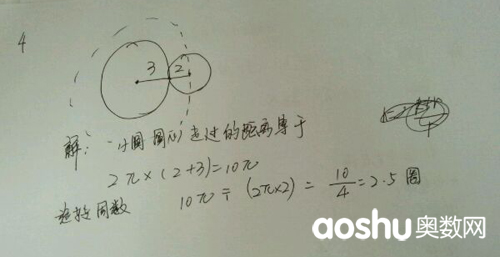 4
3 2
解：小圆圆心走过的距离等于
2π×(2+3)=10π
旋转周数 10π÷(2π×2)=10/4=2.5圈
aoshu奥数网